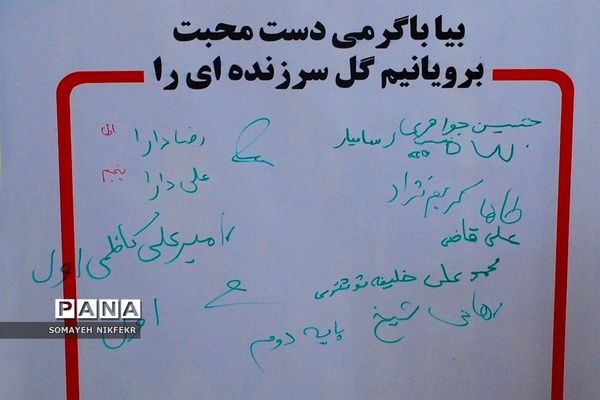 بیا با گرمی دست محبت
برویانیم گل سرزنده ای را
حسین جواهری
رضا دارا اول
علی دارا پنجم
طاها کریم نژاد
علی قاضی
امیرعلی کاظمی اول
محمد علی خلیفه
رهامی شیخ پایه دوم
PANA
SOMAYEH NIKFEKR